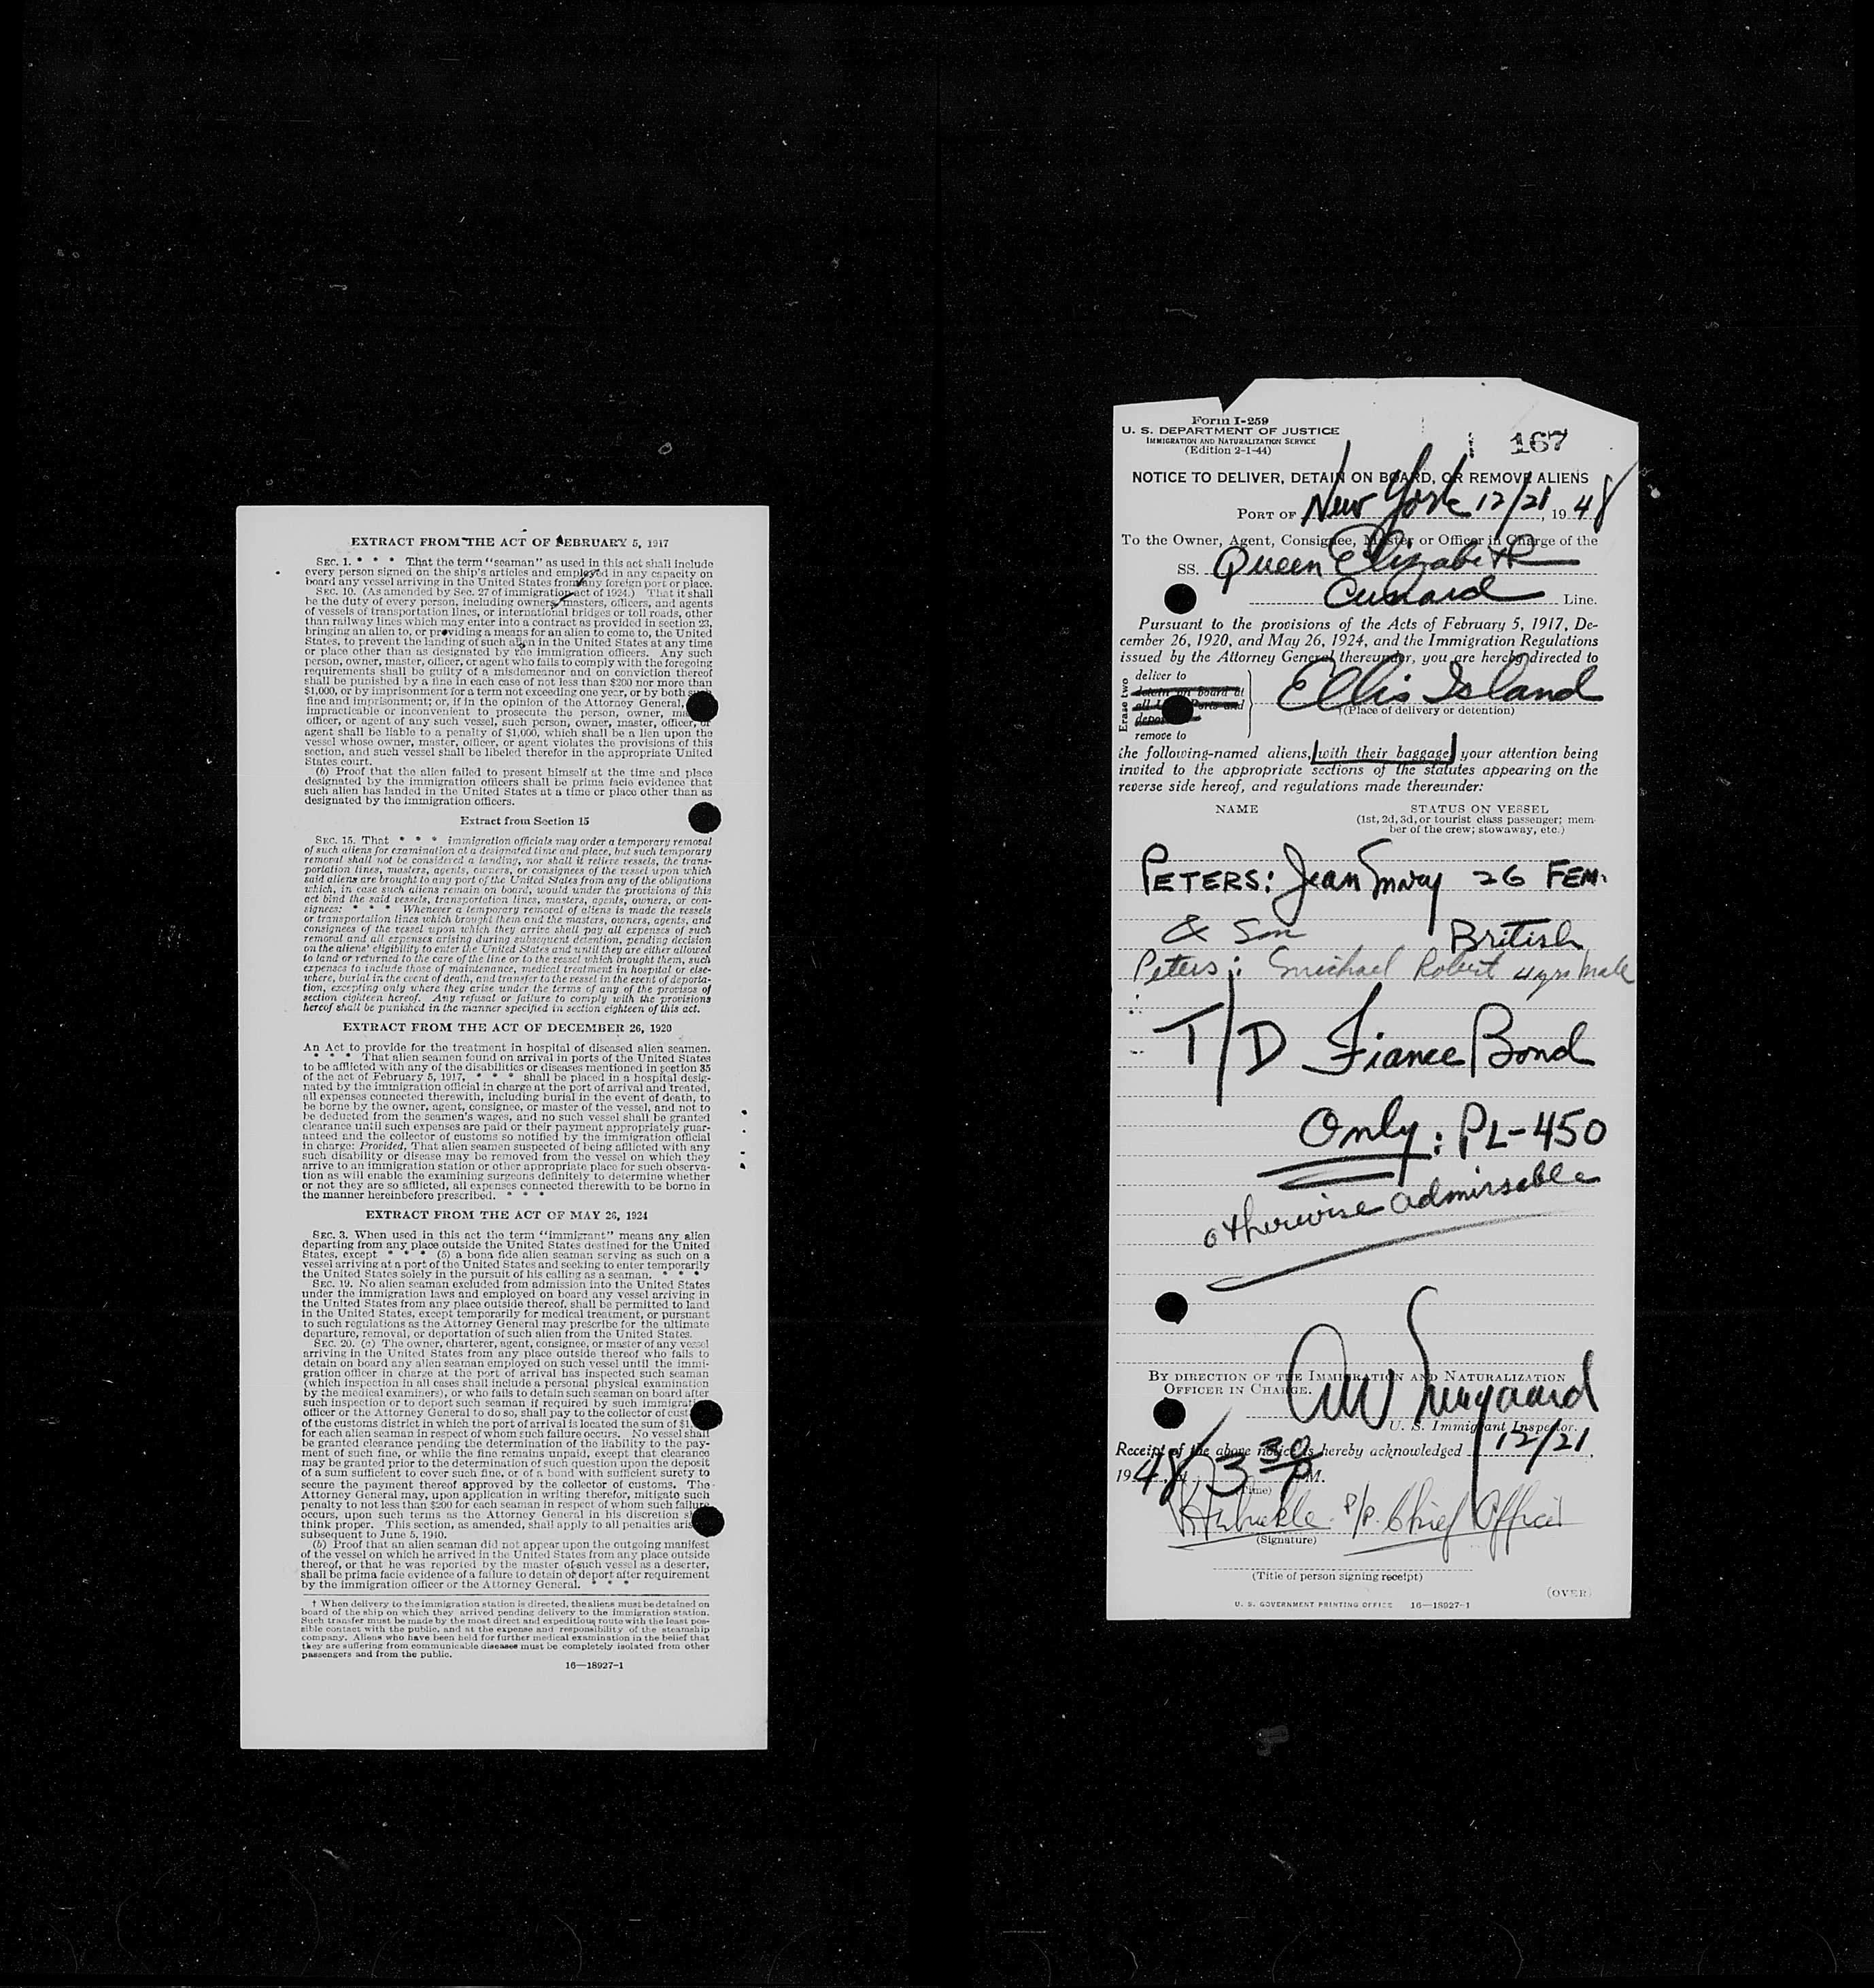 EXTRACT FROM THE ACT OF FEBRUARY 5, 1917
SEC. 1. * * * That the term "seaman" as used in this act shall include
every person signed on the ship's articles and employed in any capacity on
board any vessel arriving in the United States from any foreign port or place.
SEC. 10. (As amended by Sec. 27 of immigration act of 1924.) That it shall
be the duty of every person, including owners, masters, officers, and agents
of vessels of transportation lines, or international bridges or toll roads, other
than railway lines which may enter into a contract as provided in section 23,
bringing an alien to, or providing a means for an alien to come to, the United
States, to prevent the landing of such alien in the United States at any time
or place other than as designated by the immigration officers. Any such
person, owner, master, officer, or agent who fails to comply with the foregoing
requirements shall be guilty of a misdemeanor and on conviction thereof
shall be punished by a fine in each case of not less than $200 nor more than
$1,000, or by imprisonment for a term not exceeding one year, or by both such
fine and imprisonment; or, if in the opinion of the Attorney General,
impracticable or inconvenient to prosecute the person, owner,
officer, or agent of any such vessel, such person, owner, master, officer, or
agent shall be liable to a penalty of $1,000, which shall be a lien upon the
vessel whose owner, master, officer, or agent violates the provisions of this
section, and such vessel shall be libeled therefor in the appropriate United
States court.
(b) Proof that the alien failed to present himself at the time and place
designated by the immigration officers shall be prima facie evidence that
such alien has landed in the United States at a time or place other than as
designated by the immigration officers.
Extract from Section 15
SEC. 15. That * * * immigration officials may order a temporary removal
of such aliens for examination at a designated time and place, but such temporary
removal shall not be considered a landing, nor shall it relieve vessels, the trans-
portation lines, masters, agents, owners, or consignees of the vessel upon which
said aliens are brought to any port of the United States from any of the obligations
which, in case such aliens remain on board, would under the provisions of this
act bind the said vessels, transportation lines, masters, agents, owners, or con-
signees: * * * Whenever a temporary removal of aliens is made the vessels
or transportation lines which brought them and the masters, owners, agents, and
consignees of the vessel upon which they arrive shall pay all expenses of such
removal and all expenses arising during subsequent detention, pending decision
on the aliens' eligibility to enter the United States and until they are either allowed
to land or returned to the care of the line or to the vessel which brought them, such
expenses to include those of maintenance, medical treatment in hospital or else-
where, burial in the event of death, and transfer to the vessel in the event of deporta-
tion, excepting only where they arise under the terms of any of the provisos of
section eighteen hereof. Any refusal or failure to comply with the provisions
hereof shall be punished in the manner specified in section eighteen of this act.
EXTRACT FROM THE ACT OF DECEMBER 26, 1920
An Act to provide for the treatment in hospital of diseased alien seamen.
* * * That alien seamen found on arrival in ports of the United States
to be afflicted with any of the disabilities or diseases mentioned in section 35
of the act of February 5, 1917, * * * shall be placed in a hospital desig-
nated by the immigration official in charge at the port of arrival and treated,
all expenses connected therewith, including burial in the event of death, to
be borne by the owner, agent, consignee, or master of the vessel, and not to
be deducted from the seamen's wages, and no such vessel shall be granted
clearance until such expenses are paid or their payment appropriately guar-
anteed and the collector of customs so notified by the immigration official
in charge: Provided, That alien seamen suspected of being afflicted with any
such disability or disease may be removed from the vessel on which they
arrive to an immigration station or other appropriate place for such observa-
tion as will enable the examining surgeons definitely to determine whether
or not they are so afflicted, all expenses connected therewith to be borne in
the manner hereinbefore prescribed. * * *
EXTRACT FROM THE ACT OF MAY 26, 1924
SEC. 3. When used in this act the term "immigrant" means any alien
departing from any place outside the United States destined for the United
States, except * * * (5) a bona fide alien seaman serving as such on a
vessel arriving at a port of the United States and seeking to enter temporarily
the United States solely in the pursuit of his calling as a seaman. * * *
SEC. 19. No alien seaman excluded from admission into the United States
under the immigration laws and employed on board any vessel arriving in
the United States from any place outside thereof, shall be permitted to land
in the United States, except temporarily for medical treatment, or pursuant
to such regulations as the Attorney General may prescribe for the ultimate
departure, removal, or deportation of such alien from the United States.
SEC. 20. (a) The owner, charterer, agent, consignee, or master of any vessel
arriving in the United States from any place outside thereof who fails to
detain on board any alien seaman employed on such vessel until the immi-
gration officer in charge at the port of arrival has inspected such seaman
(which inspection in all cases shall include a personal physical examination
by the medical examiners), or who fails to detain such seaman on board after
such inspection or to deport such seaman if required by such immigration
officer or the Attorney General to do so, shall pay to the collector of
of the customs district in which the port of arrival is located the sum of
for each alien seaman in respect of whom such failure occurs. No vessel shall
be granted clearance pending the determination of the liability to the pay-
ment of such fine, or while the fine remains unpaid, except that clearance
may be granted prior to the determination of such question upon the deposit
of a sum sufficient to cover such fine, or of a bond with sufficient surety to
secure the payment thereof approved by the collector of customs. The
Attorney General may, upon application in writing therefor, mitigate such
penalty to not less than $200 for each seaman in respect of whom such failure
occurs, upon such terms as the Attorney General in his discretion
think proper. This section, as amended, shall apply to all penalties
subsequent to June 5, 1940.
(b) Proof that an alien seaman did not appear upon the outgoing manifest
of the vessel on which he arrived in the United States from any place outside
thereof, or that he was reported by the master of such vessel as a deserter,
shall be prima facie evidence of a failure to detain or deport after requirement
by the immigration officer or the Attorney General. * * *
† When delivery to the immigration station is directed, the aliens must be detained on
board of the ship on which they arrived pending delivery to the immigration station.
Such transfer must be made by the most direct and expeditious route with the least pos-
sible contact with the public, and at the expense and responsibility of the steamship
company. Aliens who have been held for further medical examination in the belief that
they are suffering from communicable diseases must be completely isolated from other
passengers and from the public.
16—18927-1
Form I-259
U. S. DEPARTMENT OF JUSTICE
IMMIGRATION AND NATURALIZATION SERVICE
(Edition 2-1-44)
167
NOTICE TO DELIVER, DETAIN ON BOARD, OR REMOVE ALIENS
PORT OF New York 12/21, 1948
To the Owner, Agent, Consignee, Master or Officer in Charge of the
SS. Queen Elizabeth
Cunard Line.
Pursuant to the provisions of the Acts of February 5, 1917, De-
cember 26, 1920, and May 26, 1924, and the Immigration Regulations
issued by the Attorney General thereunder, you are hereby directed to
Erase two
deliver to
detain on board at
all U. S. Ports and
deport
remove to
Ellis Island
†(Place of delivery or detention)
the following-named aliens, with their baggage, your attention being
invited to the appropriate sections of the statutes appearing on the
reverse side hereof, and regulations made thereunder:
NAME STATUS ON VESSEL
(1st, 2d, 3d, or tourist class passenger; mem-
ber of the crew; stowaway, etc.)
PETERS: Jean Mary 26 FEM.
& Son British
Peters: Michael Robert 4yrs Male
T/D Fiance Bond
Only: PL-450
otherwise admissable
BY DIRECTION OF THE IMMIGRATION AND NATURALIZATION
OFFICER IN CHARGE.
U. S. Immigrant Inspector.
Receipt of the above notice is hereby acknowledged 12/21,
1948, 3 30 P M.
(Time)
P/P. Chief Officer
(Signature)
(Title of person signing receipt)
(OVER)
U. S. GOVERNMENT PRINTING OFFICE 16—18927-1